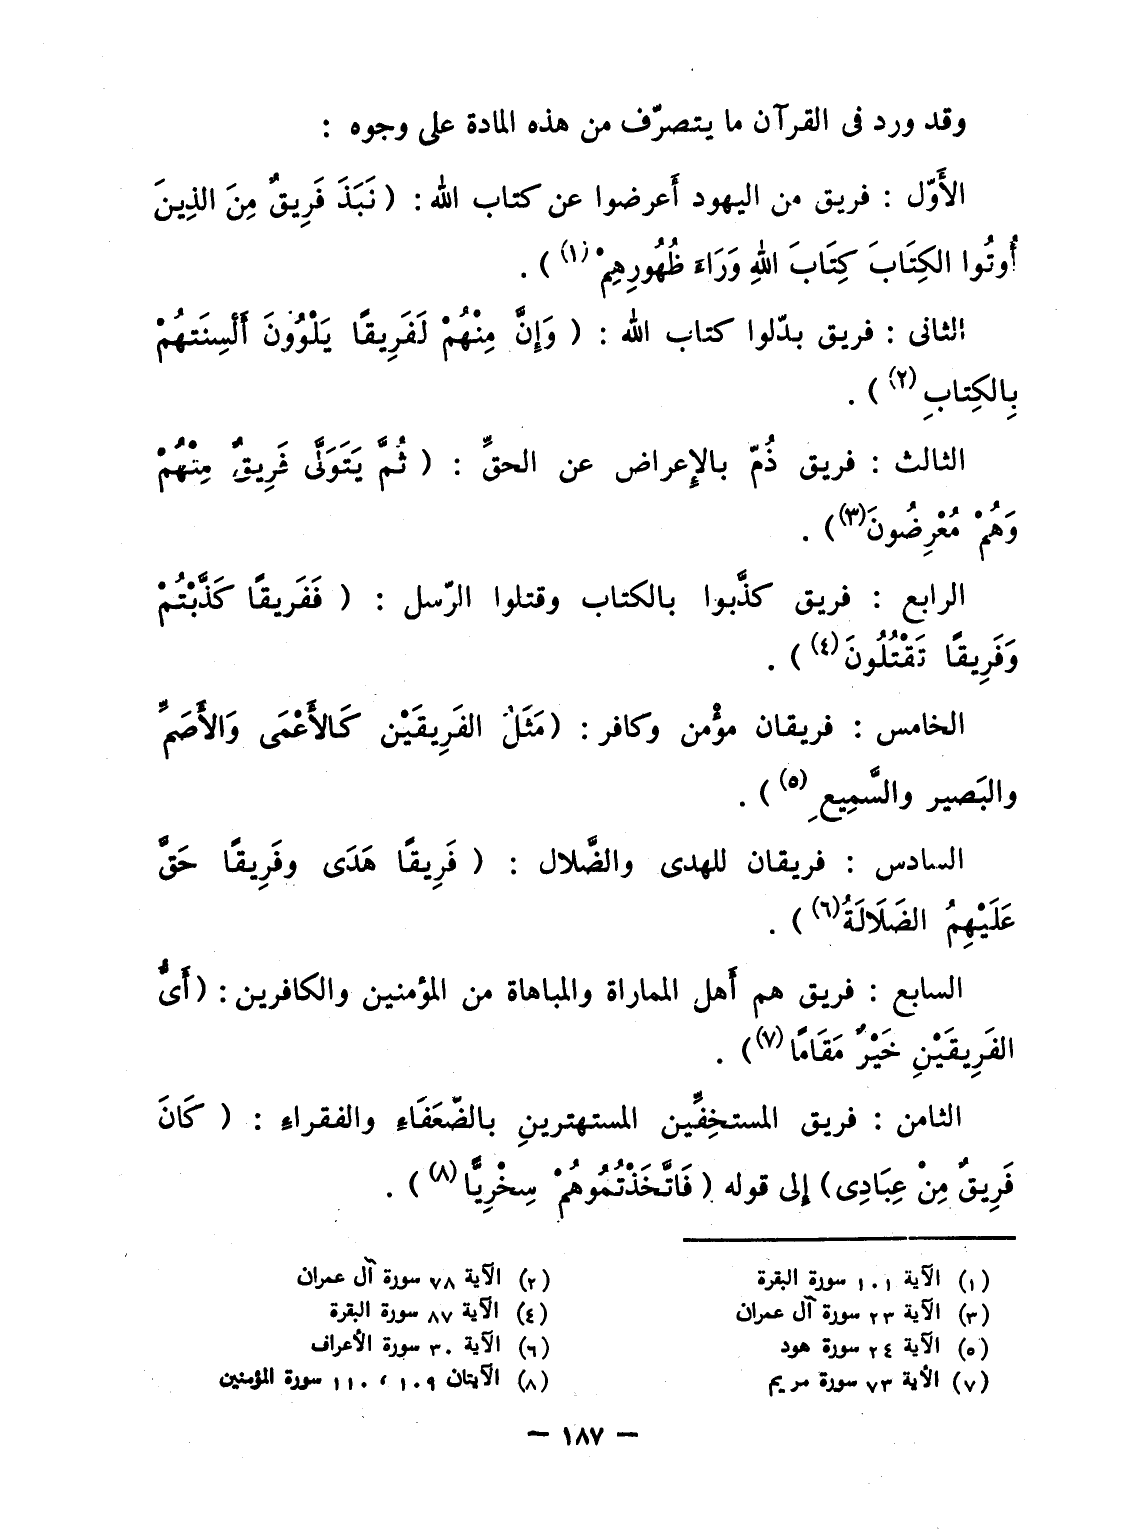 وقد ورد فى القرآن ما يتصرّف من هذه المادة على وجوه :
الأَوّل : فريق من اليهود أَعرضوا عن كتاب الله : ( نَبَذَ فَرِيقٌ مِنَ الذِينَ
أُوتُوا الكِتَابَ كِتَابَ اللهِ وَرَاءَ ظُهُورِهِمْ (١) ) .
الثانى : فريق بدّلوا كتاب الله : ( وَإِنَّ مِنْهُمْ لَفَرِيقًا يَلْوُونَ أَلْسِنَتَهُمْ
بِالكِتابِ (٢) ) .
الثالث : فريق ذُمّ بالإِعراض عن الحقِّ : ( ثُمَّ يَتَوَلَّى فَرِيقٌ مِنْهُمْ
وَهُمْ مُعْرِضُونَ (٣) ) .
الرابع : فريق كذَّبوا بالكتاب وقتلوا الرّسل : ( فَفَرِيقًا كَذَّبْتُمْ
وَفَرِيقًا تَقْتُلُونَ (٤) ) .
الخامس : فريقان مؤْمن وكافر : ( مَثَلُ الفَرِيقَيْنِ كَالأَعْمَى وَالأَصَمِّ
والبَصير والسَّمِيعِ (٥) ) .
السادس : فريقان للهدى والضَّلال : ( فَرِيقًا هَدَى وفَرِيقًا حَقَّ
عَلَيْهِمُ الضَلَالَةُ (٦) ) .
السابع : فريق هم أَهل المماراة والمباهاة من المؤمنين والكافرين : ( أَىُّ
الفَرِيقَيْنِ خَيْرٌ مَقَامًا (٧) ) .
الثامن : فريق المستخِفِّين المستهترينِ بالضّعَفَاءِ والفقراءِ : ( كَانَ
فَرِيقٌ مِنْ عِبَادِى ) إِلى قوله ( فَاتَّخَذْتُمُوهُمْ سِخْرِيًّا (٨) ) .
(١) الآية ١٠١ سورة البقرة
(٢) الآية ٧٨ سورة آل عمران
(٣) الآية ٢٣ سورة آل عمران
(٤) الآية ٨٧ سورة البقرة
(٥) الآية ٢٤ سورة هود
(٦) الآية ٣٠ سورة الأعراف
(٧) الأية ٧٣ سورة مريم
(٨) الآيتان ١٠٩ ، ١١٠ سورة المؤمنين
— ١٨٧ —